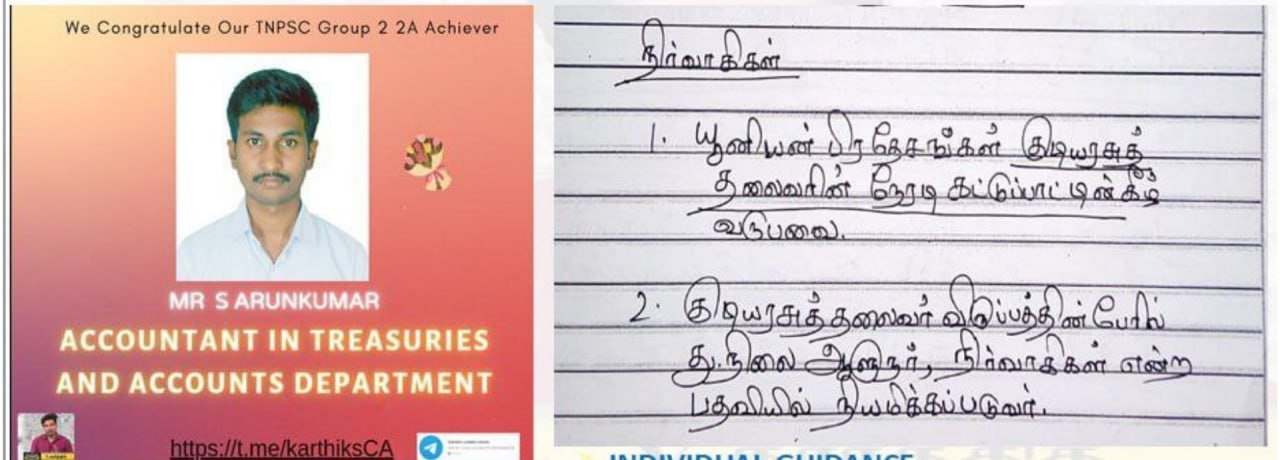 We Congratulate Our TNPSC Group 2 2A Achiever
MR S ARUNKUMAR
ACCOUNTANT IN TREASURIES
AND ACCOUNTS DEPARTMENT
https://t.me/karthiksCA
நிர்வாகிகள்
1. யூனியன் பிரதேசங்கள் குடியரசுத்
தலைவரின் நேரடி கட்டுப்பாட்டின்கீழ்
வருபவை.
2. குடியரசுத்தலைவர் விருப்பத்தின் பேரில்
து.நிலை ஆளுநர், நிர்வாகிகள் என்ற
பதவியில் நியமிக்கப்படுவர்.
INDIVIDUAL GUIDANCE